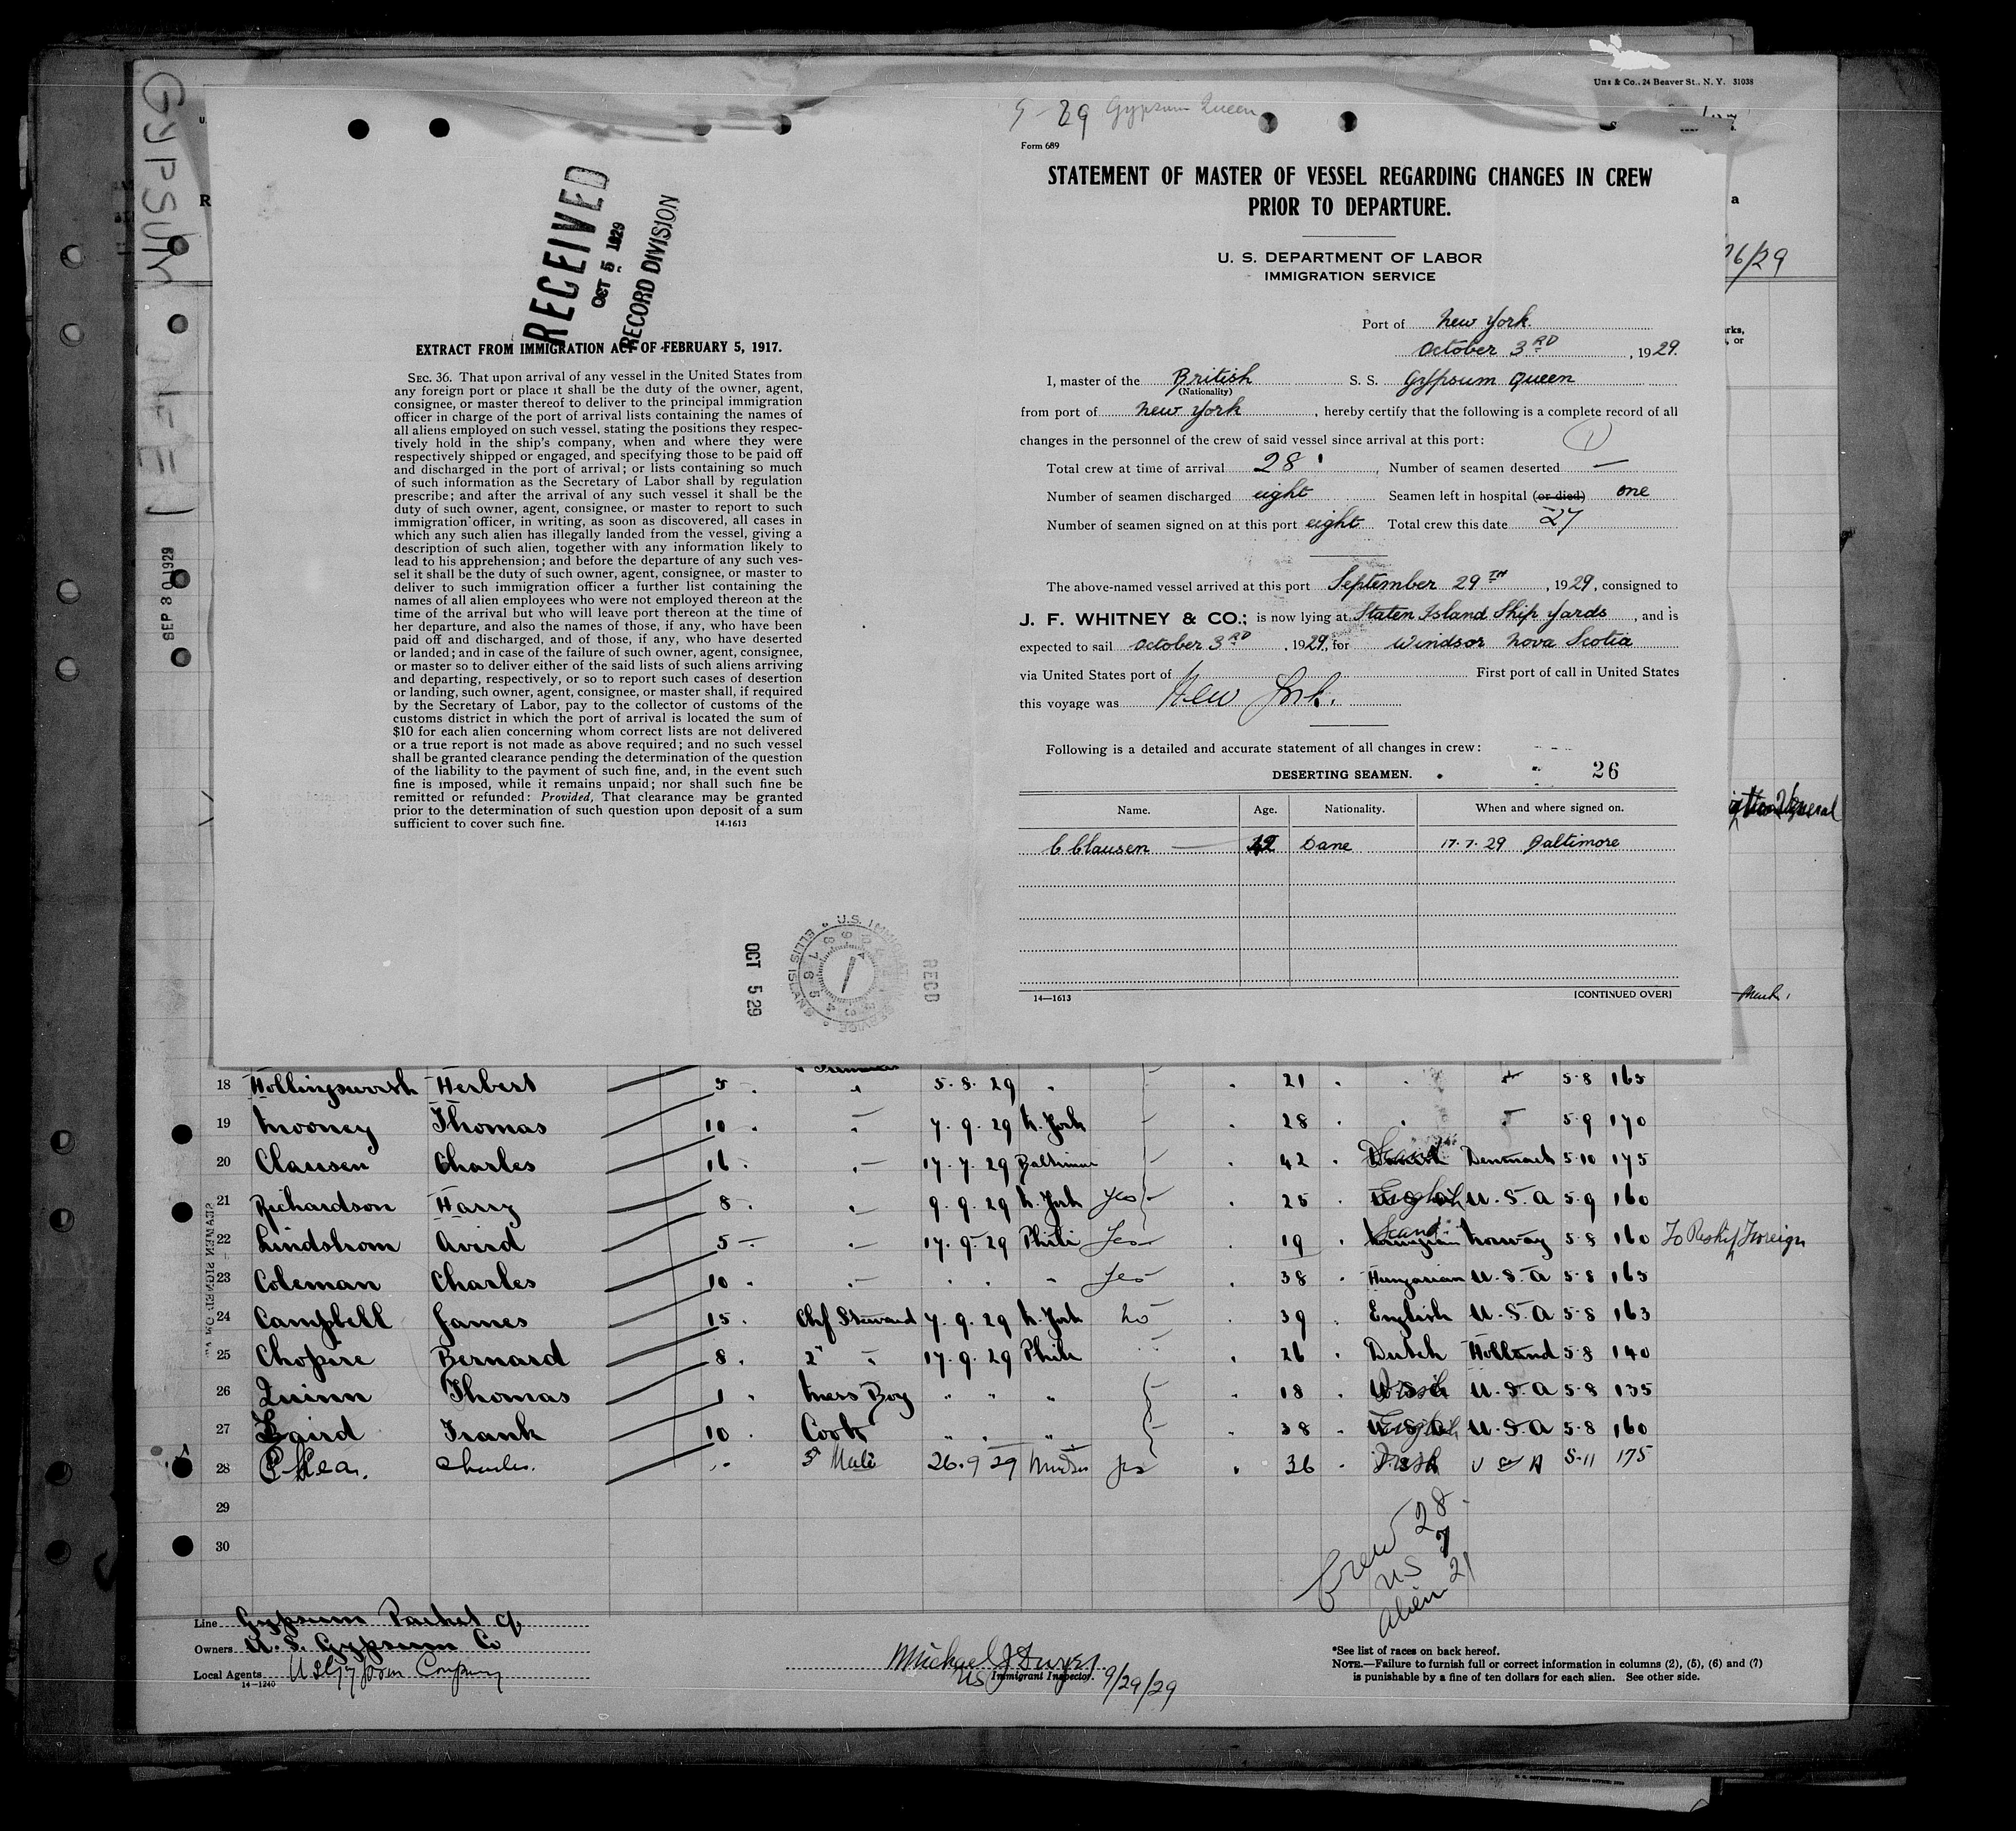 Uns & Co., 24 Beaver St., N. Y. 31038
GYPSUM
9-29 Gypsum Queen
Form 689
STATEMENT OF MASTER OF VESSEL REGARDING CHANGES IN CREW
PRIOR TO DEPARTURE.
U. S. DEPARTMENT OF LABOR
IMMIGRATION SERVICE
Port of New York.
October 3RD, 1929.
I, master of the British S. S. Gypsum Queen
(Nationality)
from port of New York, hereby certify that the following is a complete record of all
changes in the personnel of the crew of said vessel since arrival at this port:
1
Total crew at time of arrival 28, Number of seamen deserted —
Number of seamen discharged eight Seamen left in hospital (or died) one
Number of seamen signed on at this port eight Total crew this date 27
The above-named vessel arrived at this port September 29TH, 1929, consigned to
J. F. WHITNEY & CO.; is now lying at Staten Island Ship Yards, and is
expected to sail October 3RD, 1929, for Windsor Nova Scotia
via United States port of First port of call in United States
this voyage was New York.
Following is a detailed and accurate statement of all changes in crew:
DESERTING SEAMEN.
26
Name. Age. Nationality. When and where signed on.
C Clausen 42 Dane 17.7.29 Baltimore
14—1613
[CONTINUED OVER]
RECEIVED
OCT 5 1929
RECORD DIVISION
EXTRACT FROM IMMIGRATION ACT OF FEBRUARY 5, 1917.
SEC. 36. That upon arrival of any vessel in the United States from
any foreign port or place it shall be the duty of the owner, agent,
consignee, or master thereof to deliver to the principal immigration
officer in charge of the port of arrival lists containing the names of
all aliens employed on such vessel, stating the positions they respec-
tively hold in the ship's company, when and where they were
respectively shipped or engaged, and specifying those to be paid off
and discharged in the port of arrival; or lists containing so much
of such information as the Secretary of Labor shall by regulation
prescribe; and after the arrival of any such vessel it shall be the
duty of such owner, agent, consignee, or master to report to such
immigration officer, in writing, as soon as discovered, all cases in
which any such alien has illegally landed from the vessel, giving a
description of such alien, together with any information likely to
lead to his apprehension; and before the departure of any such ves-
sel it shall be the duty of such owner, agent, consignee, or master to
deliver to such immigration officer a further list containing the
names of all alien employees who were not employed thereon at the
time of the arrival but who will leave port thereon at the time of
her departure, and also the names of those, if any, who have been
paid off and discharged, and of those, if any, who have deserted
or landed; and in case of the failure of such owner, agent, consignee,
or master so to deliver either of the said lists of such aliens arriving
and departing, respectively, or so to report such cases of desertion
or landing, such owner, agent, consignee, or master shall, if required
by the Secretary of Labor, pay to the collector of customs of the
customs district in which the port of arrival is located the sum of
$10 for each alien concerning whom correct lists are not delivered
or a true report is not made as above required; and no such vessel
shall be granted clearance pending the determination of the question
of the liability to the payment of such fine, and, in the event such
fine is imposed, while it remains unpaid; nor shall such fine be
remitted or refunded: Provided, That clearance may be granted
prior to the determination of such question upon deposit of a sum
sufficient to cover such fine.
14-1613
OCT 5 29
U.S. IMMIGRATION SERVICE ELLIS ISLAND
RECD
SEP 30 1929
18 Hollingsworth Herbert 5 5.8.29 21 5-8 165
19 Mooney Thomas 10 7.9.29 N. York 28 5-9 170
20 Clausen Charles 16 17.7.29 Baltimore 42 Scand Denmark 5-10 175
21 Richardson Harry 8 9.9.29 N. York Yes 25 English U.S.A 5-9 160
22 Lindstrom Avird 5 17.9.29 Phili Yes 19 Scand Norway 5-8 160 To Reship Foreign
23 Coleman Charles 10 Yes 38 Hungarian U.S.A 5-8 165
24 Campbell James 15 Chf Steward 7.9.29 N. York No 39 English U.S.A 5-8 163
25 Chopire Bernard 8 2" 17.9.29 Phili 26 Dutch Holland 5-8 140
26 Quinn Thomas 1 Mess Boy 18 Irish U.S.A 5-8 135
27 Baird Frank 10 Cook 38 English U.S.A 5-8 160
28 O'Hea. Charles. 26.9.29 Yes 36 Irish U S A 5-11 175
29
30
Crew 28
US 7
Alien 21
Line Gypsum Packet Co
Owners U.S. Gypsum Co
Local Agents U S Gypsum Company
14-1240
Michael J Dwyer
US Immigrant Inspector. 9/29/29
*See list of races on back hereof.
NOTE.—Failure to furnish full or correct information in columns (2), (5), (6) and (7)
is punishable by a fine of ten dollars for each alien. See other side.